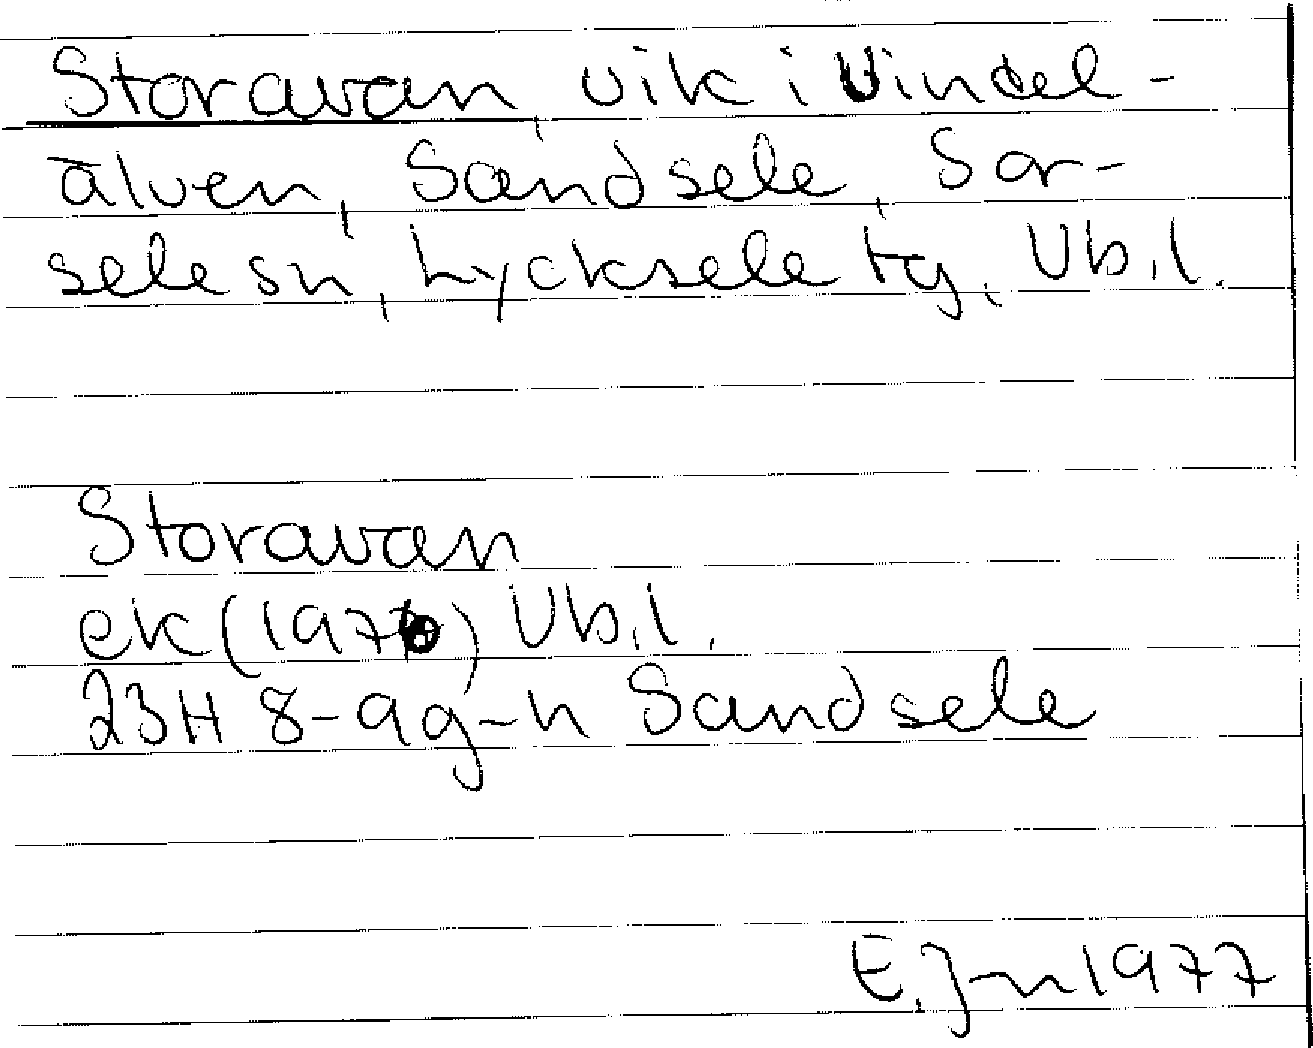 Storavan, vik i Vindel-
älven, Sandsele, Sor-
sele sn, Lycksele tg, Vb.l.
Storavan
ek (1970) Vb.l.
23H 8-9g-h Sandsele
E.J-n 1977